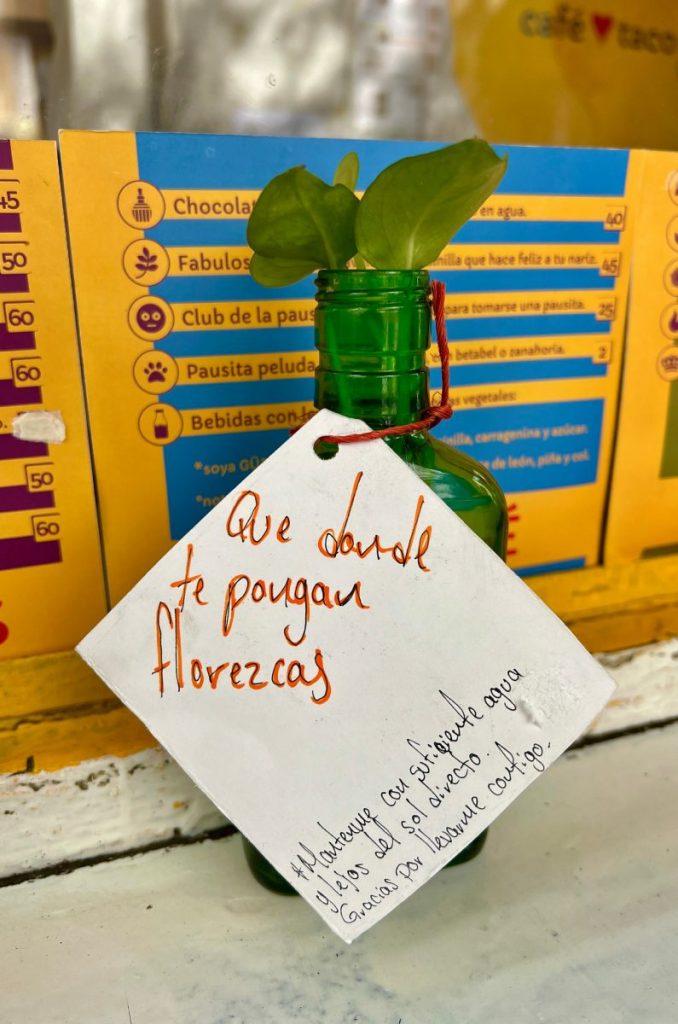 café ♥ taco
45
50
60
60
50
60
Chocolat
en agua.
40
Fabulos
nilla que hace feliz a tu nariz.
45
Club de la paus
para tomarse una pausita.
25
Pausita peluda
betabel o zanahoria.
2
Bebidas con
vegetales:
*soya
vainilla, carragenina y azúcar.
de león, piña y col.
Que donde
te pongan
florezcas
*Mantenme con suficiente agua
y lejos del sol directo.
Gracias por llevarme contigo.